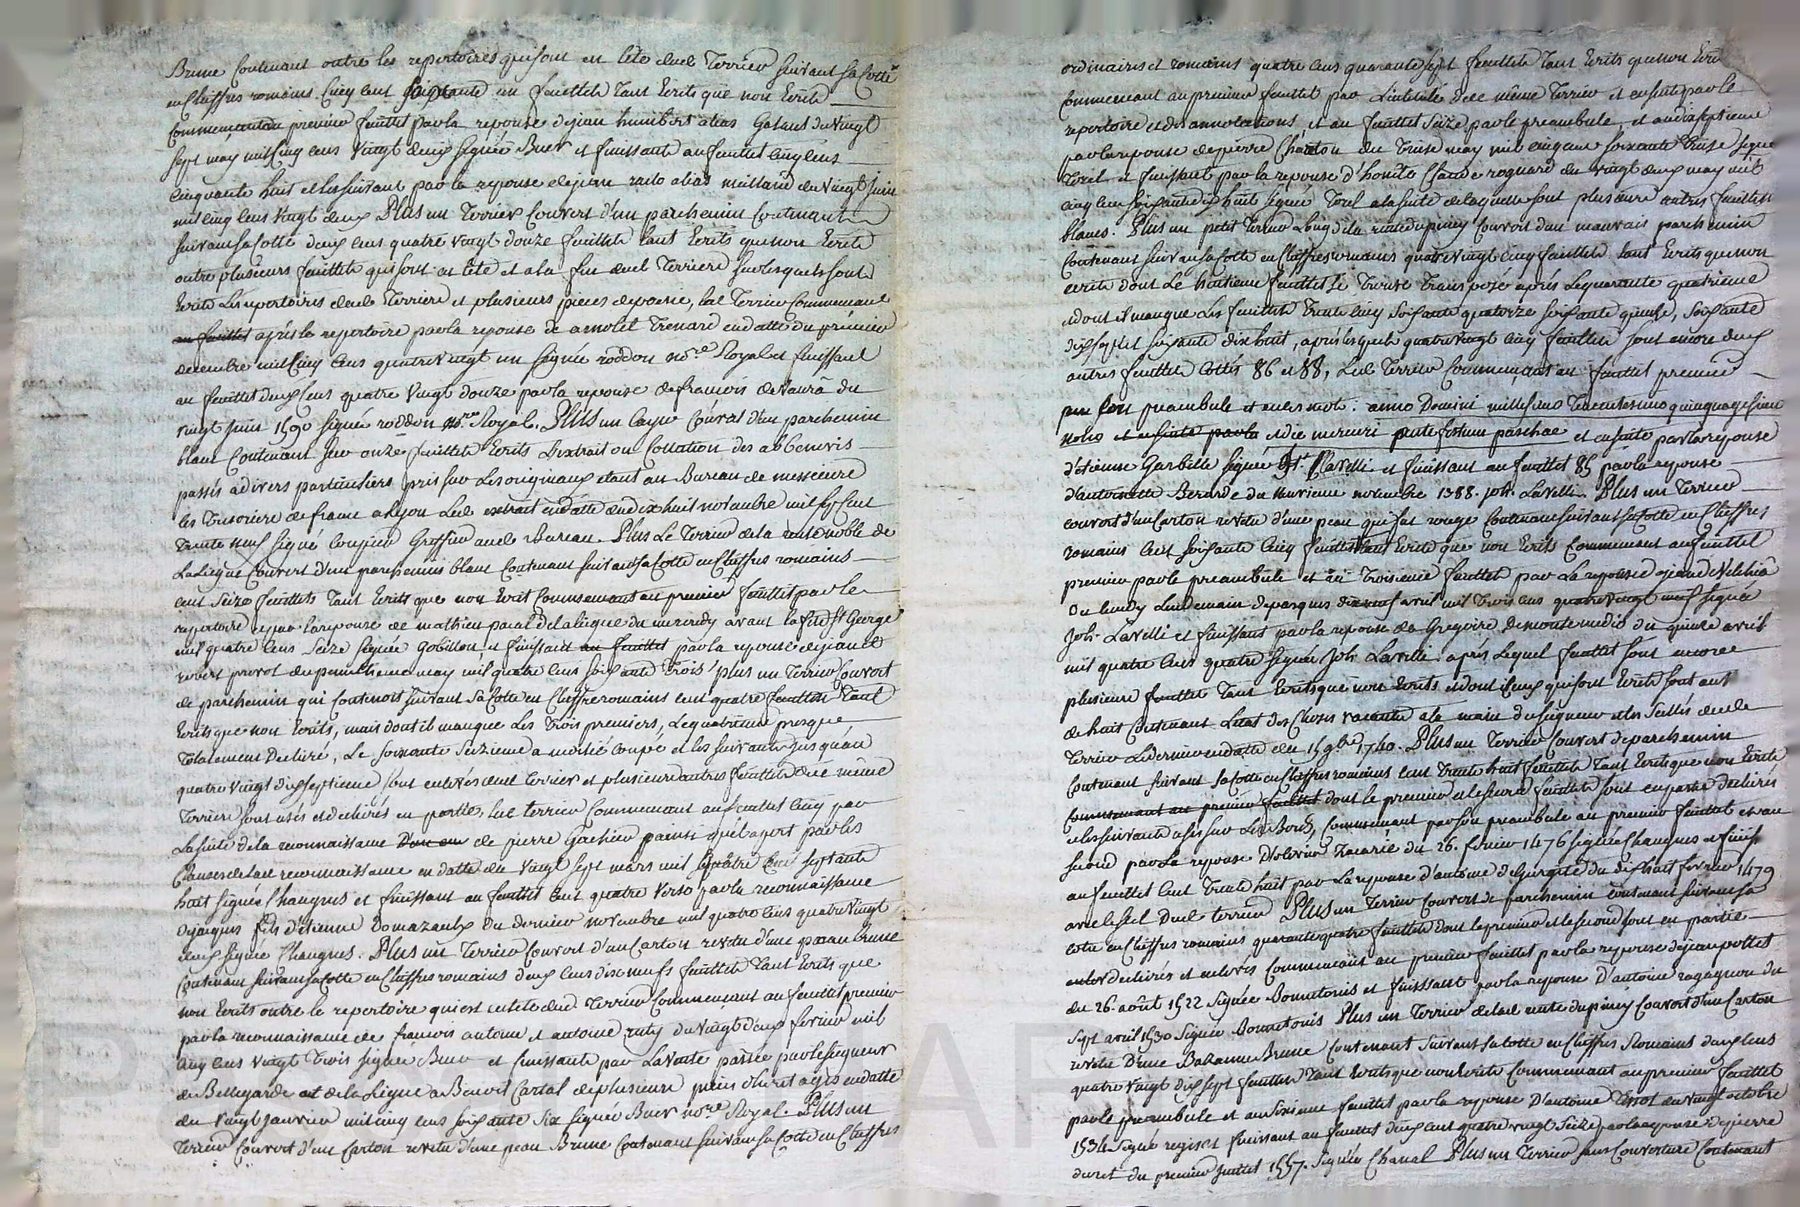 Brune Contenant outre les repertoires qui sont en tête dud. Terrier suivant sa Cotte
en Chiffres romains Cinq cent soixante un feuillets tant Ecrits que non Ecrits
Commençant au premier feuillet par la reponse de jean humbert alias Galand du vingt
sept may mil cinq cens vingt deux signée Buer et finissante au feuillet cinq cens
cinquante huit et les suivant par la reponse de jean alias maillard du vingt juin
mil cinq cens vingt deux Plus un Terrier Couvert d'un parchemin Contenant
suivant sa Cotte deux cens quatre vingt douze feuillets tant Ecrits que non Ecrits
outre plusieurs feuillets qui sont en tête et a la fin dud. Terrier sur lesquels sont
Ecrits Les repertoires dud. Terrier et plusieurs pieces de poesie, led. Terrier Commençant
au feuillet après le repertoire par la reponse de Trenard en datte du prémier
decembre mil cinq cens quatre vingt un signée roddon no.re Royal et finissant
au feuillet deux cens quatre vingt douze par la reponse de francois du
vingt juin 1590 signée roddon no.re Royal. Plus un Cayer Couvert d'un parchemin
blanc Contenant sur onze feuillets Ecrits L'extrait ou Collation des abbenevis
passés a divers particuliers pris sur Les originaux etant au Bureau de messieurs
les Tresoriers de france a Lyon Led. extrait en datte du dix huit novembre mil sept cent
trente neuf signé Greffier aud. Bureau. Plus Le Terrier de la rente noble de
La Liegue Couvert d'un parchemin blanc Contenant suivant sa Cotte en Chiffres romains
cent seize feuillets tant Ecrits que non Ecrit Commençant au premier feuillet par le
repertoire et par la reponse de mathieu de la liegue du mercredy avant la fête St George
mil quatre cens seize signée Gobillon et finissant au feuillet par la reponse de jean
provot du penultieme may mil quatre cens soixante trois / plus un Terrier Couvert
de parchemin qui Contenoit suivant sa Cotte en Chiffre romains cent quatre feuillets tant
Ecrits que non Ecrits, mais dont il manque Les trois premiers, Le quatrieme presque
Totalement Dechiré, Le soixante seizieme a moitié coupé et les suivants jusqu'au
quatre vingt dix septieme sont enlevés dud. Terrier et plusieurs autres feuillets dud. même
Terrier sont usés et dechirés en partie, led. terrier Commençant au feuillet cinq par
La suite de la reconnaissance de pierre par les
Clauses de lad. reconnaissance en datte du vingt sept mars mil quatre cens septante
huit signée Chaugnes et finissant au feuillet cent quatre verso par la reconnaissance
de jaques fils d'étienne Domazaulx du dernier novembre mil quatre cens quatre vingt
deux signée Chaugnes. Plus un Terrier Couvert d'un Carton revetu d'une peau Brune
Contenant suivant sa Cotte en Chiffres romains deux cens dix neufs feuillets tant Ecrits que
non Ecrits outre le repertoire qui est en tete dud. Terrier Commençant au feuillet premier
par la reconnaissance de francois antoine et antoine ruty du vingt deux fevrier mil
cinq cens vingt trois signée Buer et finissante par La vente passée par le seigneur
de Bellegarde et de la Liegue a Benoit Cartal de plusieurs en datte
du vingt janvier mil cinq cens soixante six signée Buer no.re Royal. Plus un
Terrier Couvert d'un Carton revetu d'une peau Brune Contenant suivant sa Cotte en Chiffres
ordinaires et romains quatre cens quarante sept feuillets tant Ecrits que non Ecrits
Commencant au premier feuillet par L'intitulé de ce même Terrier et ensuite par le
repertoire et des annotations, et au feuillet seize par le preambule, et au dix septieme
par la reponse de pierre Charton du treise may mil cinq cent soixante treise signé
Torel et finissant par la reponse d'honête Claude rognard du vingt deux may mil
cinq cens soixante dix huit signée Torel a la suite de laquelle sont plusieurs autres feuillets
blancs. Plus un petit Terrier Long de la rente du piney Couvert d'un mauvais parchemin
Contenant suivant sa Cotte en Chiffres romains quatre vingt cinq feuillets tant Ecrits que non
ecrits dont Le huitieme feuillet se trouve transposé après Le quarante quatrieme
et dont il manque Les feuillets trente cinq soixante quatorze soixante quinze, soixante
dix sept et soixante dix huit, après lesquels quatre vingt cinq feuillets sont encore deux
autres feuillets Cottés 86 et 88, Led. Terrier Commençant au feuillet premier
par son preambule et en ces mots: anno Domini millesimo trecentesimo quinquagesimo
nono et ensuite par la et die mercuri post festum paschae et ensuite par la reponse
d'etienne Garbille signée St. Clavelli et finissant au feuillet 85 par la reponse
d'antoinette Berarde du neuvieme novembre 1388. joh. Lavelli. Plus un Terrier
couvert d'un Carton revetu d'une peau qui fut rouge Contenant suivant sa Cotte en Chiffres
romains cent soixante cinq feuillets tant Ecrits que non Ecrits Commençant au feuillet
premier par le preambule et au troisieme feuillet par La reponse de jean de Velchia
Du lundy Lendemain de pasques dix neuf avril mil trois cens quatre vingt neuf signée
joh. Lavelli et finissant par la reponse de Gregoire Demontmedio du quinze avril
mil quatre cens quatre signée Joh. Lavelli. après Lequel feuillet sont encore
plusieurs feuillets tant Ecrits que non Ecrits et dont il ceux qui sont Ecrits sont au
de huit Contenant L'etat des Choses vacantes a la main du seigneur et les feuillés dud.
Terrier Le dernier en datte du 15 9bre 1740. Plus un Terrier Couvert de parchemin
Contenant suivant sa Cotte en Chiffres romains cent trente huit feuillets tant Ecrits que non Ecrits
Commencant au premier feuillet dont le premier et le second feuillets sont en partie dechirés
et les suivants usés sur Les Bords, Commençant par son preambule au premier feuillet et au
second par La reponse D'olivier Zacarie du 26. fevrier 1476 signée Chaugnes et finiss.
au feuillet cent trente huit par La reponse d'antoine du dix huit fevrier 1479
avec le scel dud. terrier Plus un Terrier Couvert de parchemin contenant suivant sa
cotte en Chiffres romains quarante quatre feuillets dont le premier et le second sont en partie
dechirés et enlevés Commençant au premier feuillet par la reponse de jean pottet
du 26. août 1522 signée Bonnetonis et finissant par la reponse D'antoine ragagnon du
sept avril 1530 signée Bonnetonis Plus un Terrier de lad. rente du piney Couvert d'un Carton
revetu D'une Bazanne Brune Contenant suivant sa cotte en Chiffres Romains deux cens
quatre vingt dix sept feuillets tant Ecrits que non Ecrits Commencant au premier feuillet
par le preambule et au sixieme feuillet par la reponse D'antoine du vingt octobre
1534 signée regis et finissant au feuillet deux cens quatre vingt seize par la reponse de pierre
duret du premier juillet 1557. signée Chanal Plus un Terrier sans Couverture Contenant